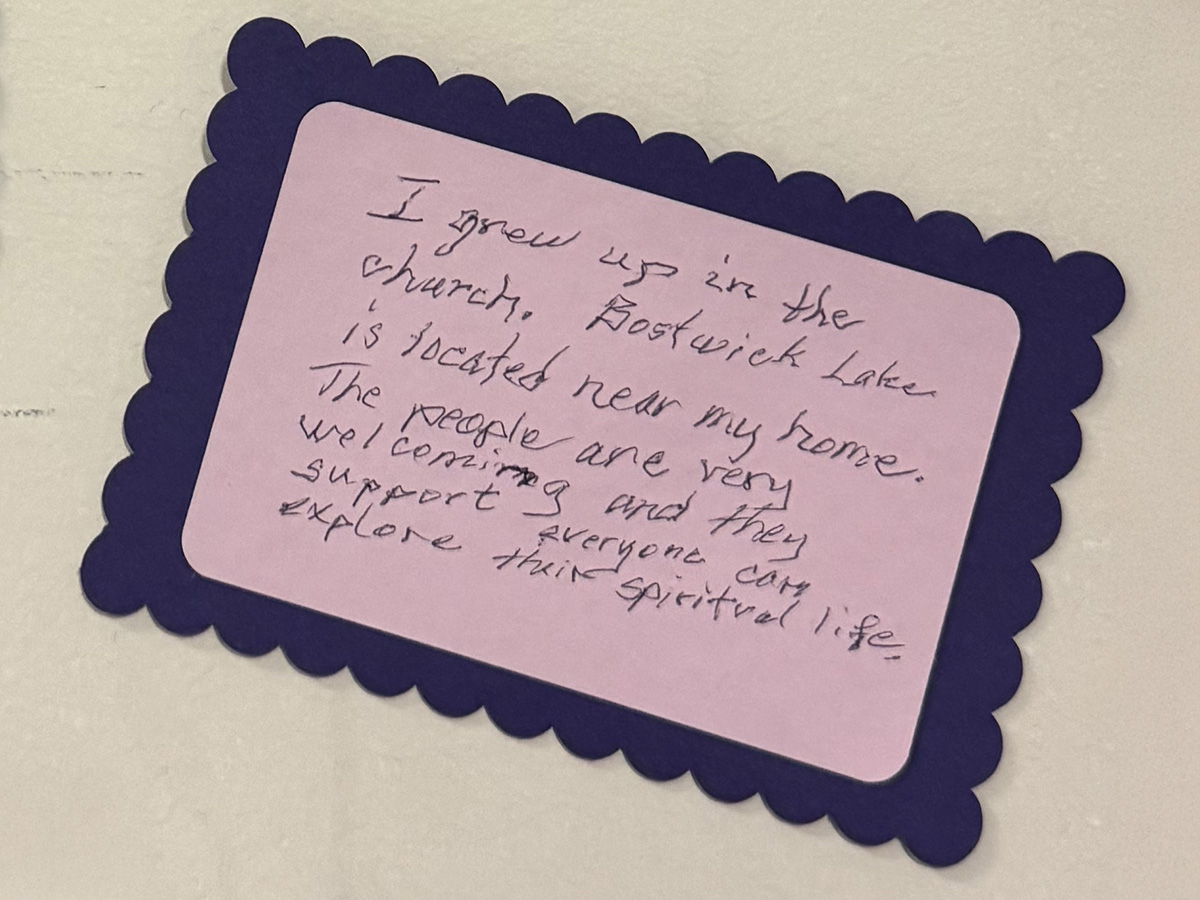 I grew up in the
church. Bostwick Lake
is located near my home.
The people are very
welcoming and they
support everyone can
explore their spiritual life.